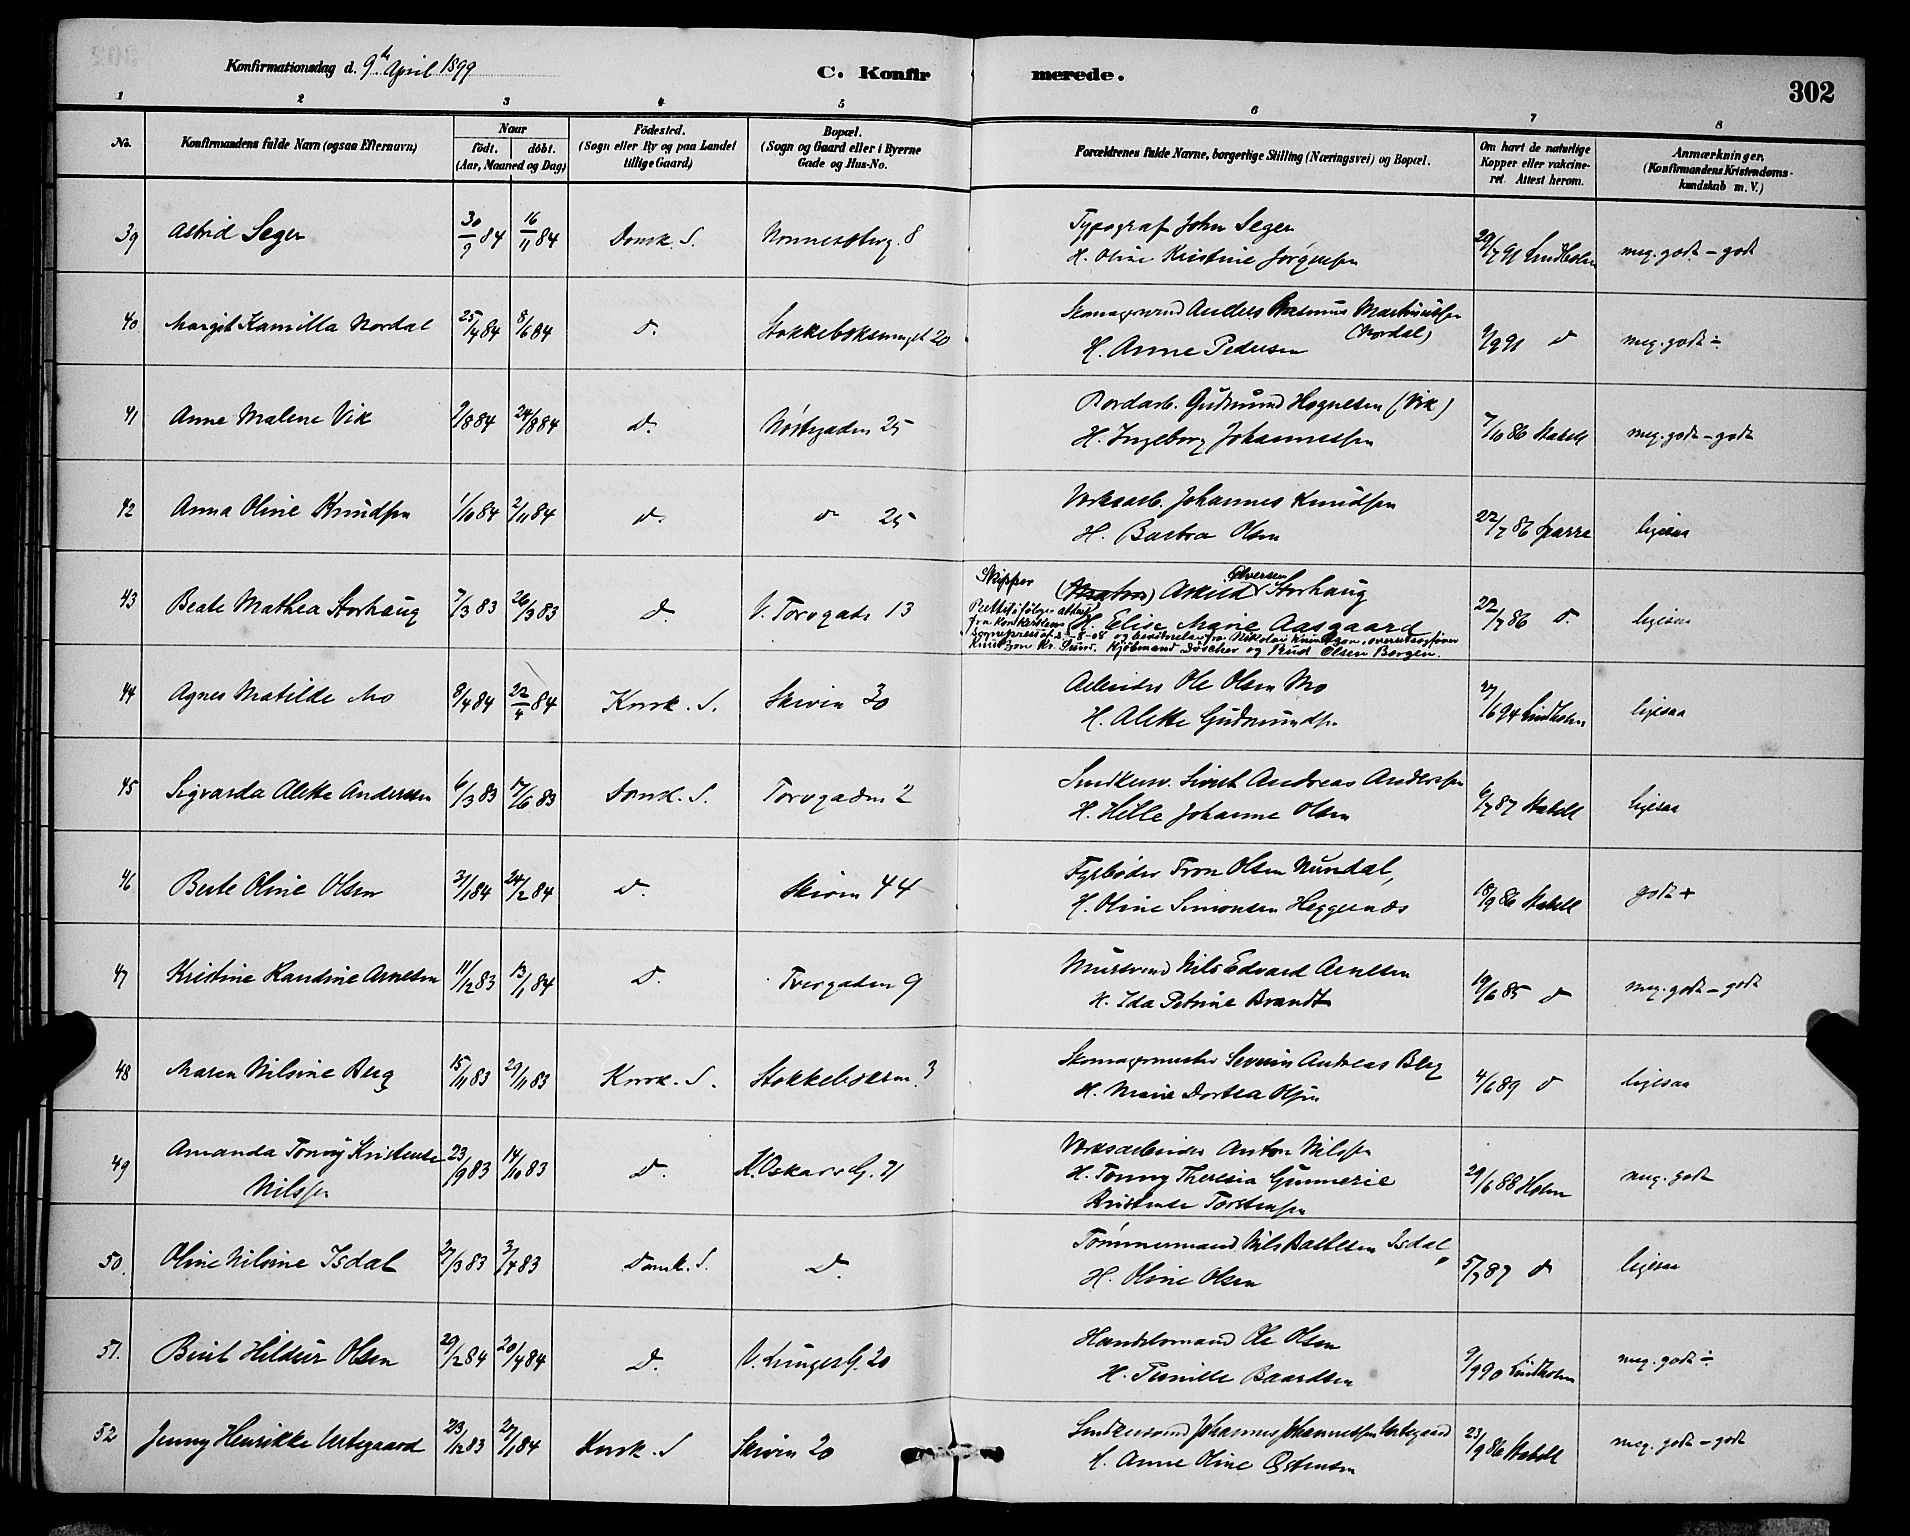 Konfirmationsdag d. 9de April 1899
C. Konfirmerede.
302
1 2 3 4 5 6 7 8
No.
Konfirmandens fulde Navn (ogsaa Efternavn)
Naar
födt. döbt.
(Aar, Maaned og Dag)
Födested.
(Sogn eller By og paa Landet
tillige Gaard)
Bopæl.
(Sogn og Gaard eller i Byerne
Gade og Hus-No.
Forældrenes fulde Navne, borgerlige Stilling (Næringsvei) og Bopæl.
Om havt de naturlige
Kopper eller vakcine-
ret. Attest herom.
Anmærkninger.
(Konfirmandens Kristendoms-
kundskab m. V.)
39 Astrid Seger 30/9 84 16/11 84 Domk. S. Nonnesæterg. 8 Typograf John Seger
H. Oline Kristine Jørgensen 29/7 91 Lindholm meg. godt - godt
40 Margit Kamilla Nordal 25/4 84 8/6 84 d. Stokkeboksmuget 20 Skomagersvend Anders Rasmus Martinussen
(Nordal)
H. Anne Pedersen 9/9 91 d meg. godt ÷
41 Anne Malene Vik 2/8 84 24/8 84 d. Nøstegaden 25 Bordarb. Gudmund Hognesen (Vik)
H. Ingeborg Johannessen 7/10 86 Stabell meg. godt - godt
42 Anna Oline Knudsen 1/10 84 2/11 84 d. d 25 Værksarb. Johannes Knudsen
H. Barbra Olsen 22/7 86 Sparre ligesaa
43 Beate Mathea Storhaug 7/3 83 26/3 83 d. V. Torvgade 13 Skipper Askild Iversen Storhaug
Rettet ifølge attest
fra Korskirkens H. Elise Marie Aasgaard
Sognepræst af 2-8-08 og bevidnelse fra Nikolai Knudtzon, overretssagfører
Knudtzon Kr. Sund, Kjöbmand Döscher og Rud Olsen Bergen. 22/7 86 d. ligesaa
44 Agnes Matilde Mo 8/4 84 22/4 84 Korsk. S. Skiven 30 Arbeider Ole Olsen Mo
H. Alette Gudmundsen 27/6 94 Lindholm ligesaa
45 Sigvarda Alette Andersen 6/3 83 17/6 83 Domk. S. Torvgaden 2 Snedkersv. Sivert Andreas Andersen
H. Hille Johanne Olsen 6/7 87 Stabell ligesaa
46 Berte Oline Olsen 3/1 84 24/2 84 d. Skiven 44 Fyrbøder Tron Olsen Nundal,
H. Oline Simonsen Heggernæs 18/9 86 Stabell godt +
47 Kristine Randine Arnesen 11/12 83 13/1 84 D. Tvergaden 9 Mursvend Nils Edvard Arnesen
H. Ida Petrine Brandt 19/6 85 d meg. godt - godt
48 Maren Nilsine Berg 15/11 83 29/11 83 Korsk. S. Stokkeboksm. 3 Skomagermester Severin Andreas Berg
H. Marie Dortea Olsen 4/6 89 d ligesaa
49 Amanda Tonny Kristense
Nilssen 23/9 83 14/10 83 D. K. Oskars G. 71 Værksarbeider Anton Nilssen
H. Tonny Theresia Gunnerie
Kristense Torstensen 29/6 88 Holm meg. godt
50. Oline Nilsine Isdal 27/3 83 3/4 83 Domk. S. D. Tømmermand Nils Baltesen Isdal,
H. Oline Olsen 5/7 87 d ligesaa
51. Birit Hildur Olsen 29/2 84 20/4 84 D. V. Lungeg. 20 Handelsmand Ole Olsen
H. Pernille Baardsen 9/9 90 Lindholm meg. godt ÷
52 Jenny Henrikke Urtegaard 23/12 83 27/1 84 Korsk. S Skiven 20 Snedkersvend Johannes Johannessen Urtegaard
H. Anne Oline Østensen 23/9 86 Stabell meg. godt - godt